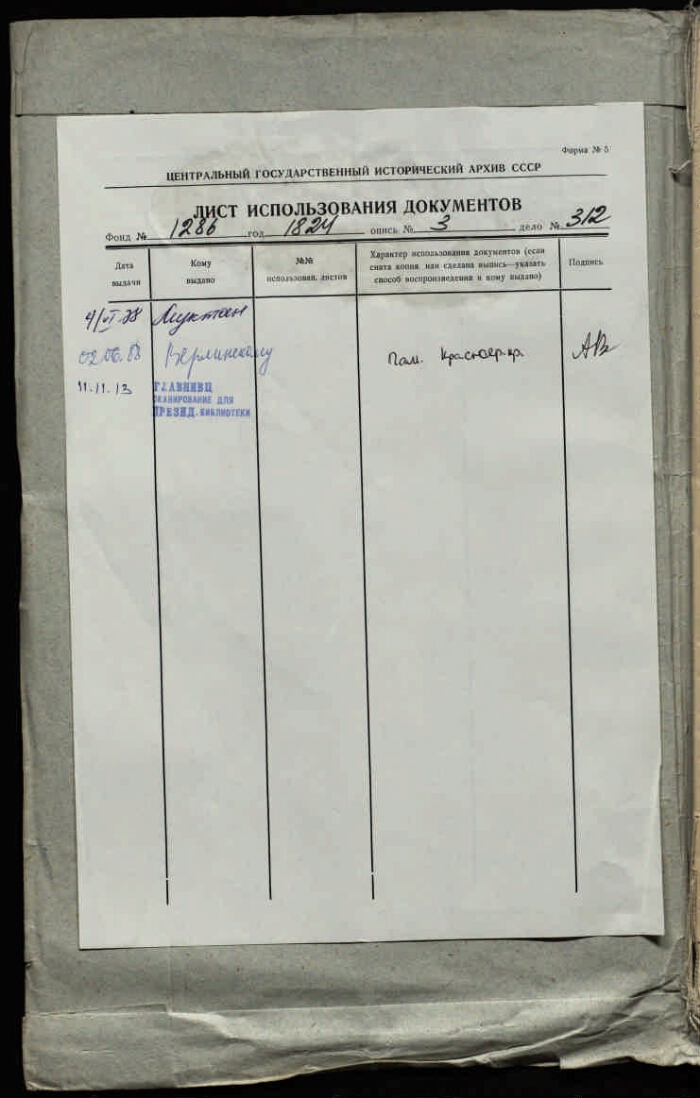 Форма № 5
ЦЕНТРАЛЬНЫЙ ГОСУДАРСТВЕННЫЙ ИСТОРИЧЕСКИЙ АРХИВ СССР
ЛИСТ ИСПОЛЬЗОВАНИЯ ДОКУМЕНТОВ
Фонд № 1286 год 1824 опись № 3 дело № 312
Дата выдачи
Кому выдано
№№ использован. листов
Характер использования документов (если снята копия или сделана выпись—указать способ воспроизведения и кому выдано)
Подпись
02.06.88 Верлинскому
11.11.13 ГЛАВНИВЦ
СКАНИРОВАНИЕ ДЛЯ
ПРЕЗИД. БИБЛИОТЕКИ